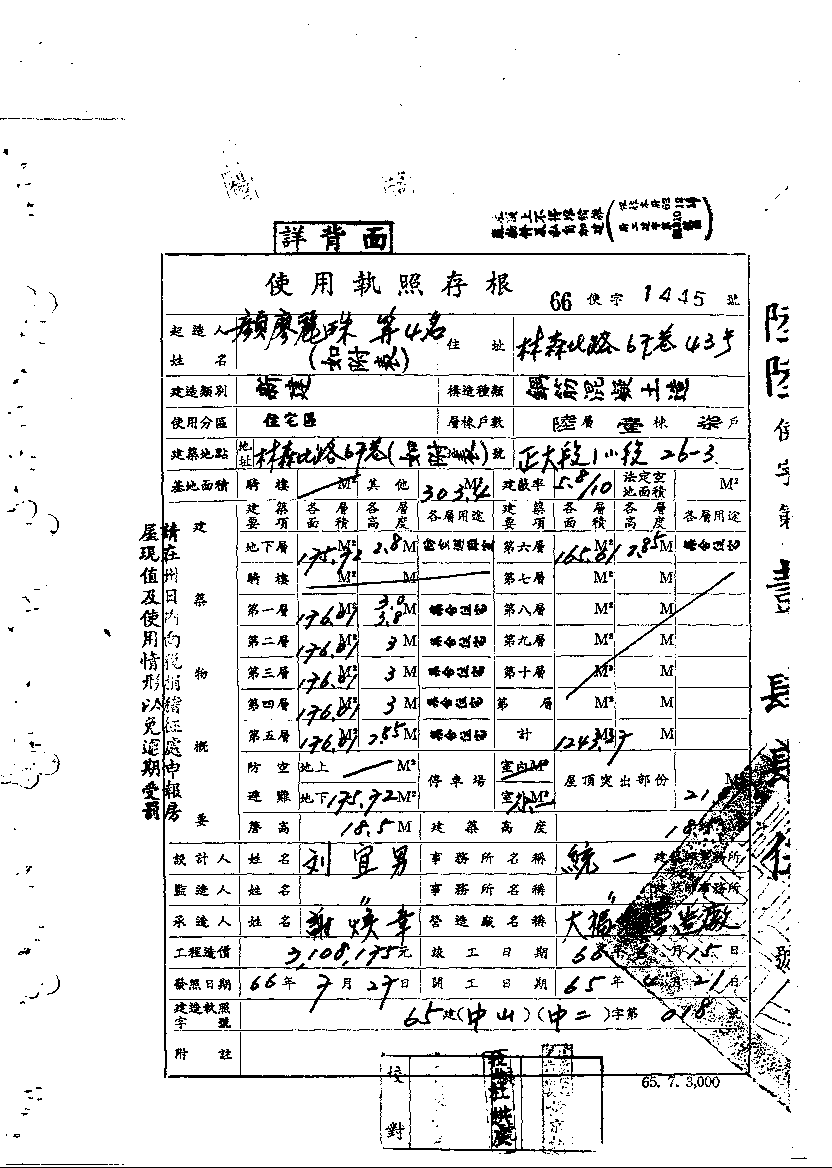 詳背面
使用執照存根
66 使字 1445 號
起造人姓名 顏廖麗珠 等4名 (如附表) 住址 林森北路67巷43号
建造類別 新建 構造種類 鋼筋混凝土造
使用分區 住宅區 層棟戶數 陸層 壹棟 柒戶
建築地點 地址 林森北路67巷 號 正大段1小段 26-3
基地面積 騎樓 M² 其他 303.4 M² 建蔽率 5.8/10 法定空地面積 M²
建築物概要
建築要項 各層面積 各層高度 各層用途 建築要項 各層面積 各層高度 各層用途
地下層 175.72 M² 2.8 M 第六層 165.01 M² 2.85 M 集合住宅
騎樓 M² M 第七層 M² M
第一層 176.07 M² 3.0 3.8 M 集合住宅 第八層 M² M
第二層 176.07 M² 3 M 集合住宅 第九層 M² M
第三層 176.07 M² 3 M 集合住宅 第十層 M² M
第四層 176.07 M² 3 M 集合住宅 第 層 M² M
第五層 176.07 M² 2.85 M 集合住宅 計 M²
防空避難 地上 M² 停車場 室內 M² 屋頂突出部份 M²
地下 175.72 M² 室外 M² 21
簷高 18.5 M 建築高度
設計人 姓名 刘宜男 事務所名稱 統一建築師事務所
監造人 姓名 〃 事務所名稱 〃 建築師事務所
承造人 姓名 謝煥幸 營造廠名稱 營造廠
工程造價 3,108,175元 竣工日期 66年 月15日
發照日期 66年7月27日 開工日期 65年4月21日
建造執照字號 65建(中山)(中二)字第 018 號
附註
校對
65. 7. 3,000
請在卅日內向稅捐稽征處申報房
屋現值及使用情形以免逾期受罰
陸陸使字第